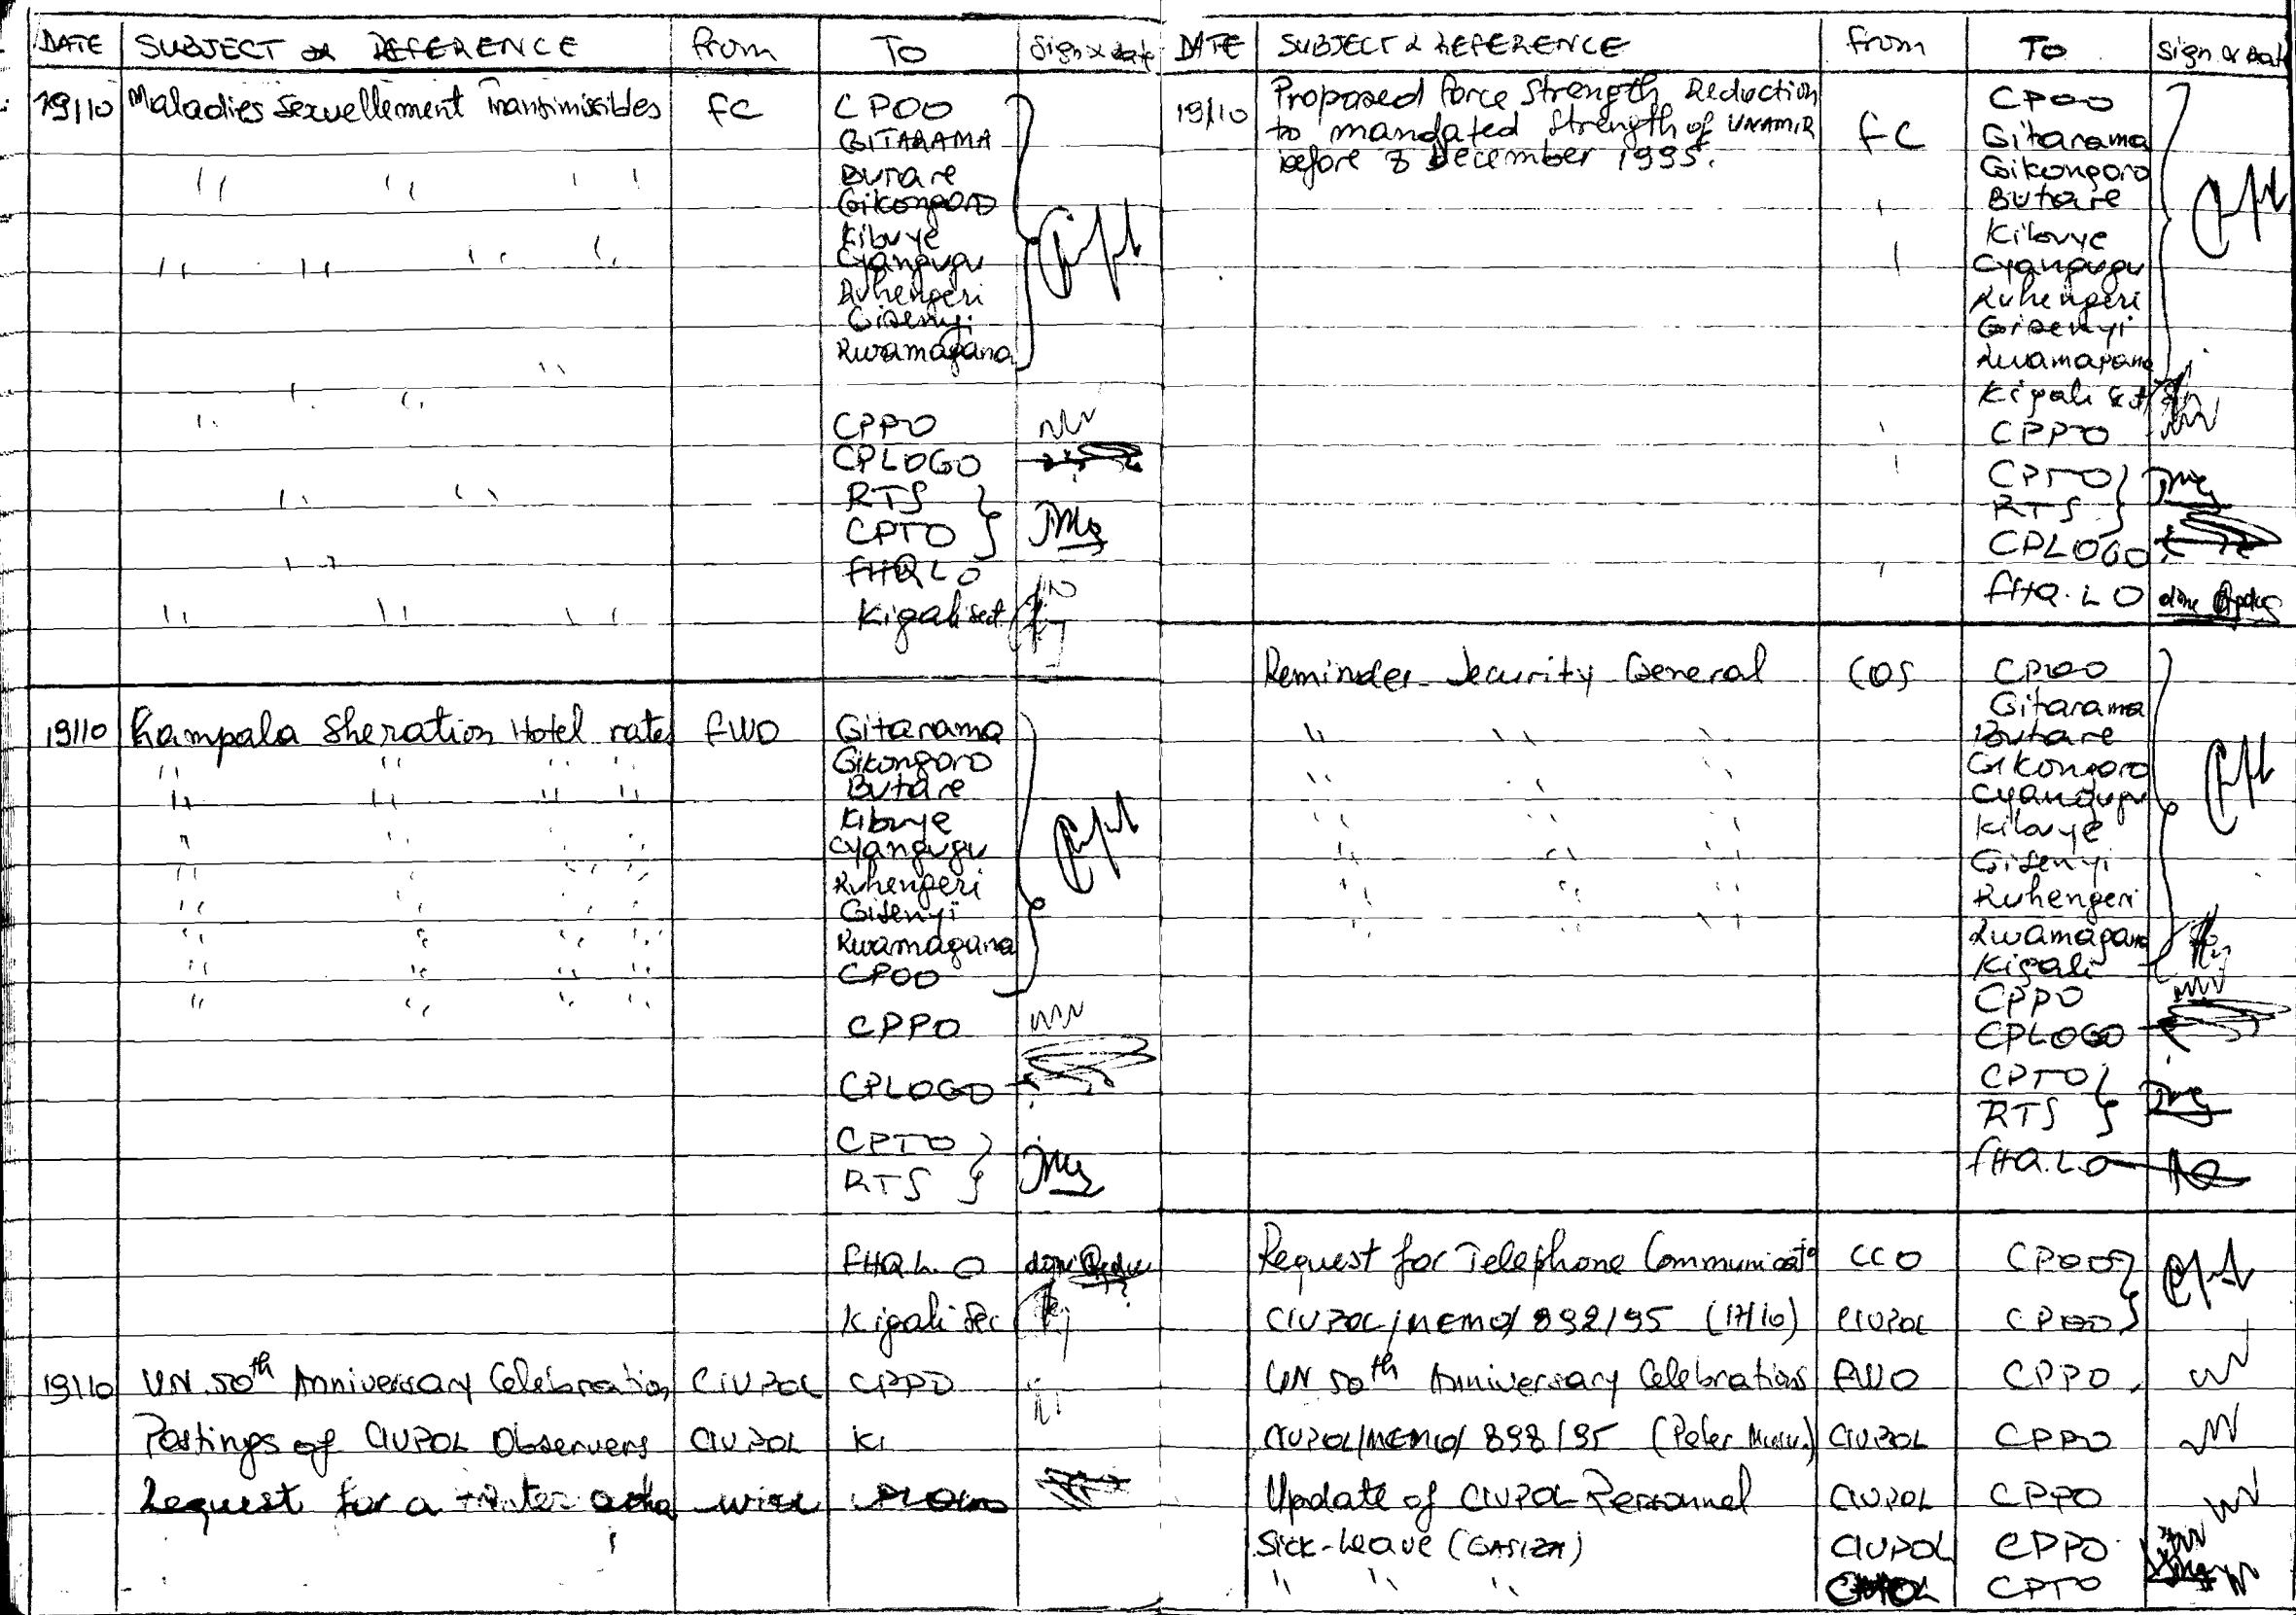 DATE SUBJECT or REFERENCE from TO Sign & date
19/10 Maladies Sexuellement Transmissibles FC CPOO
GITARAMA
" " " " Butare
Gikongoro
Kibuye
" " " " Cyangugu
Ruhengeri
Gisenyi
Rwamagana
CPPO
CPLOGO
RTS
CPTO
FHQLO
" " " Kigali sect
19/10 Kampala Sheration Hotel rates FWO Gitarama
" " " " Gikongoro
" " " " Butare
" " " " Kibuye
" " " " Cyangugu
" " " " Ruhengeri
" " " " Gisenyi
" " " " Rwamagana
" " " " CPOO
" " " " CPPO
CPLOGO
CPTO
RTS
FHQ L.O
Kigali Sec
19/10 UN 50th Anniversary Celebration CIVPOL CPPO
Postings of CIVPOL Observers CIVPOL Ki
Request for a
DATE SUBJECT & REFERENCE from TO Sign & date
19/10 Proposed Force Strength Reduction
to mandated Strength of UNAMIR FC CPOO
before 8 December 1995. Gitarama
Gikongoro
Butare
Kibuye
Cyangugu
Ruhengeri
Gisenyi
Rwamagana
Kigali sect
CPPO
CPTO
RTS
CPLOGO
FHQ.LO done
Reminder Security General COS CPOO
Gitarama
" " " Butare
" " " Gikongoro
" " " Cyangugu
" " " Kibuye
" " " Gisenyi
" " " Ruhengeri
Rwamagana
Kigali
CPPO
CPLOGO
CPTO
RTS
FHQ.L.O
Request for Telephone Communicat CCO CPOO
CIVPOL/MEMO/892/95 (17/10) CIVPOL CPOO
UN 50th Anniversary Celebrations FWO CPPO
CIVPOL/MEMO/898/95 (Peter CIVPOL CPPO
Update of CIVPOL Personnel CIVPOL CPPO
Sick-Leave (GASIZA) CIVPOL CPPO
" " " CPTO